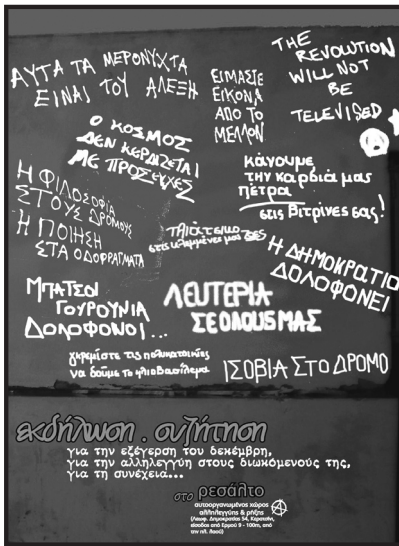 ΑΥΤΑ ΤΑ ΜΕΡΟΝΥΧΤΑ
ΕΙΝΑΙ ΤΟΥ ΑΛΕΞΗ
ΕΙΜΑΣΤΕ
ΕΙΚΟΝΑ
ΑΠΟ ΤΟ
ΜΕΛΛΟΝ
THE
REVOLUTION
WILL NOT
BE
TELEVISED
Ο ΚΟΣΜΟΣ
ΔΕΝ ΚΕΡΔΙΖΕΤΑΙ
ΜΕ ΠΡΟΣΕΥΧΕΣ
κάνουμε
την καρδιά μας
πέτρα
στις βιτρίνες σας!
Η ΦΙΛΟΣΟΦΙΑ
ΣΤΟΥΣ ΔΡΟΜΟΥΣ
Η ΠΟΙΗΣΗ
ΣΤΑ ΟΔΟΦΡΑΓΜΑΤΑ
πλιάτσικο
στις κλεμμένες μας ζωές
Η ΔΗΜΟΚΡΑΤΙΑ
ΔΟΛΟΦΟΝΕΙ
ΜΠΑΤΣΟΙ
ΓΟΥΡΟΥΝΙΑ
ΔΟΛΟΦΟΝΟΙ...
ΛΕΥΤΕΡΙΑ
ΣΕ ΟΛΟΥΣ ΜΑΣ
γκρεμίστε τις πολυκατοικίες
να δούμε το ηλιοβασίλεμα
ΙΣΟΒΙΑ ΣΤΟ ΔΡΟΜΟ
εκδήλωση . συζήτηση
για την εξέγερση του δεκέμβρη,
για την αλληλεγγύη στους διωκόμενούς της,
για τη συνέχεια...
στο ρεσάλτο
αυτοοργανωμένος χώρος
αλληλεγγύης & ρήξης
(Λεωφ. Δημοκρατίας 54, Κερατσίνι,
είσοδος από Ερμού 9 - 100m, από
την πλ. Λαού)